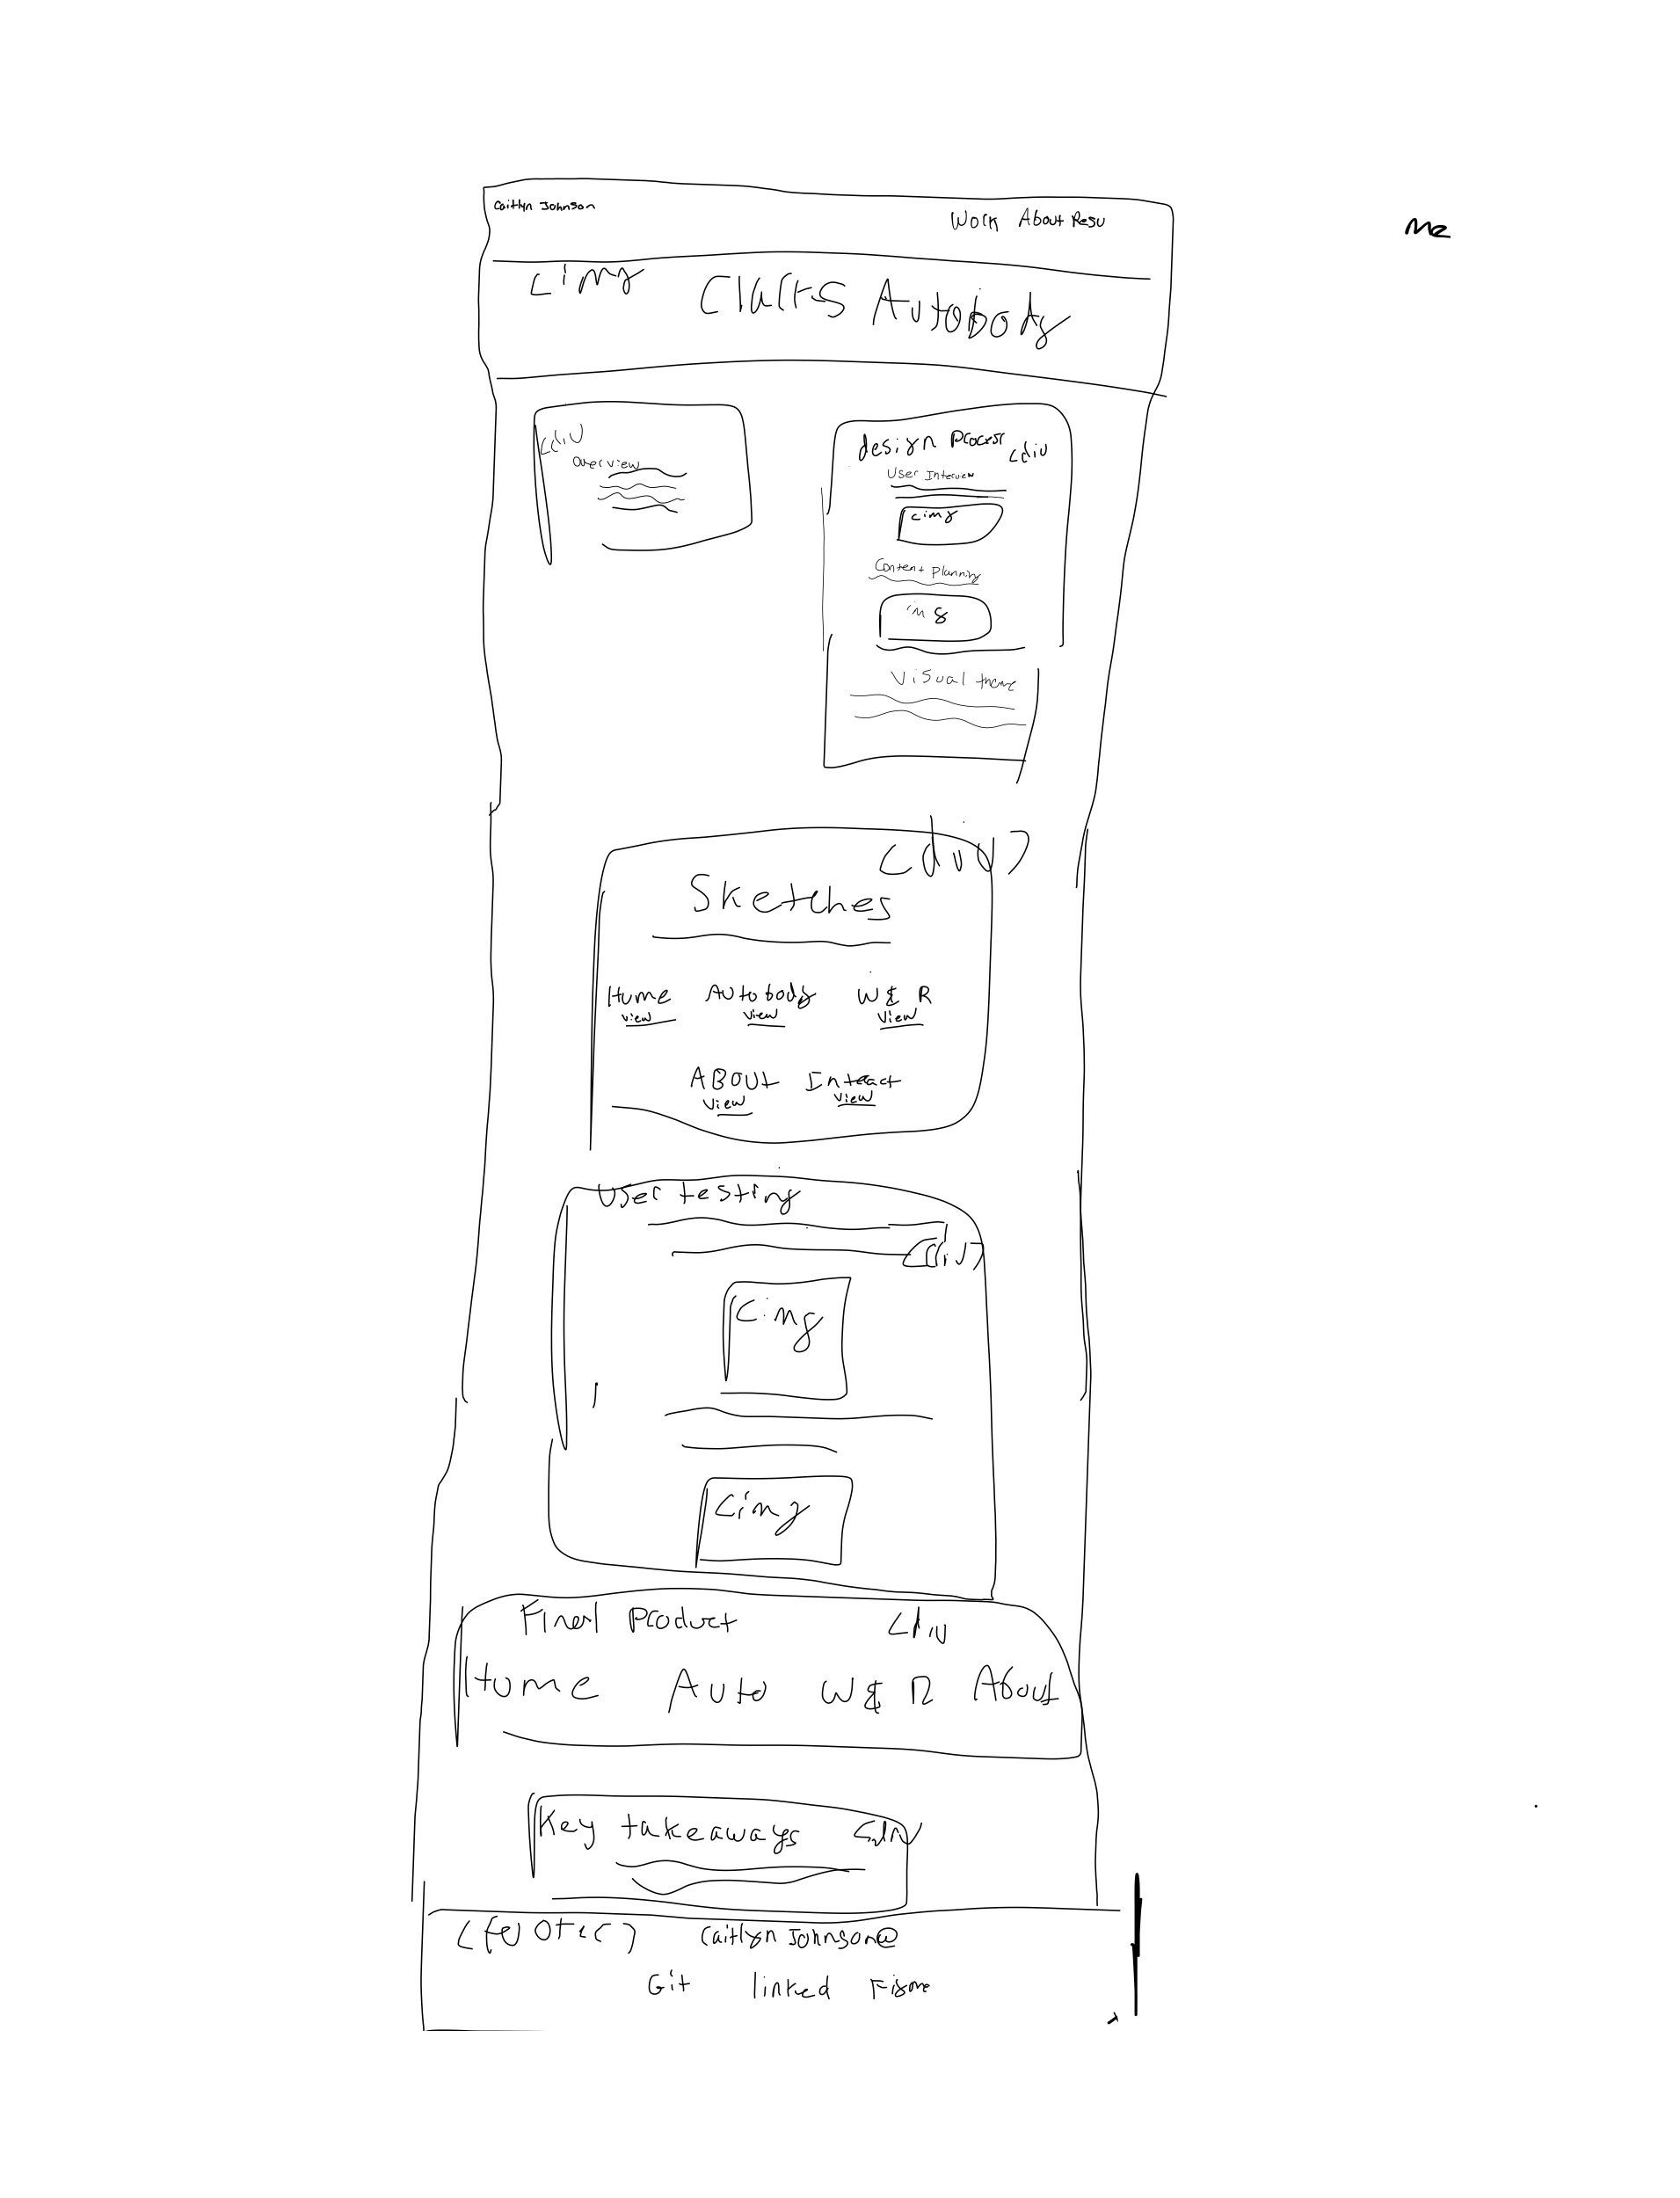 Caitlyn Johnson
Work About Resu
me
<img
Clarks Autobody
<div
Overview
design process
<div
User Interview
<img
Content Planning
img
Visual theme
<div>
Sketches
Home Autobody W & R
view view view
ABOUT Interact
view view
User testing
<div>
<img
<img
Final Product <div
Home Auto W & R About
Key takeaways <div
<footer> Caitlyn Johnson@
Git linked Figma